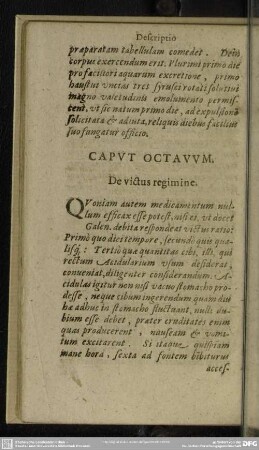 Descriptio
præparatam tabellulam comedet. Dein
corpus exercendum erit. Plurimi primo die
pro faciliori aquarum excretione, primo
haustui uncias tres syrupi rosati solutivi
magno valetudinis emolumento permis-
cent, ut sic natura primo die, ad expulsionē
solicitata & adiuta, reliquis diebus facilius
suo fungatur officio.
CAPVT OCTAVVM.
De victus regimine.
QVoniam autem medicamentum nul-
lum efficax esse potest, nisi ei, ut docet
Galen. debita respondeat victus ratio:
Primò quo dici tempore, secundò quæ qua-
lisq́; : Tertiò quæ quantitas cibi, illi, qui
rectum Acidularium usum desiderat,
conveniat, diligenter considerandum. A-
cidulas igitur non nisi vacuo stomacho pro-
desse, neque cibum ingerendum quam diu
hæ adhuc in stomacho fluctuant, nulli du-
bium esse debet, præter cruditates enim
quas producerent, nauseam & vomi-
tum excitarent. Si itaque quispiam
mane hora, sexta ad fontem bibiturus
acces-